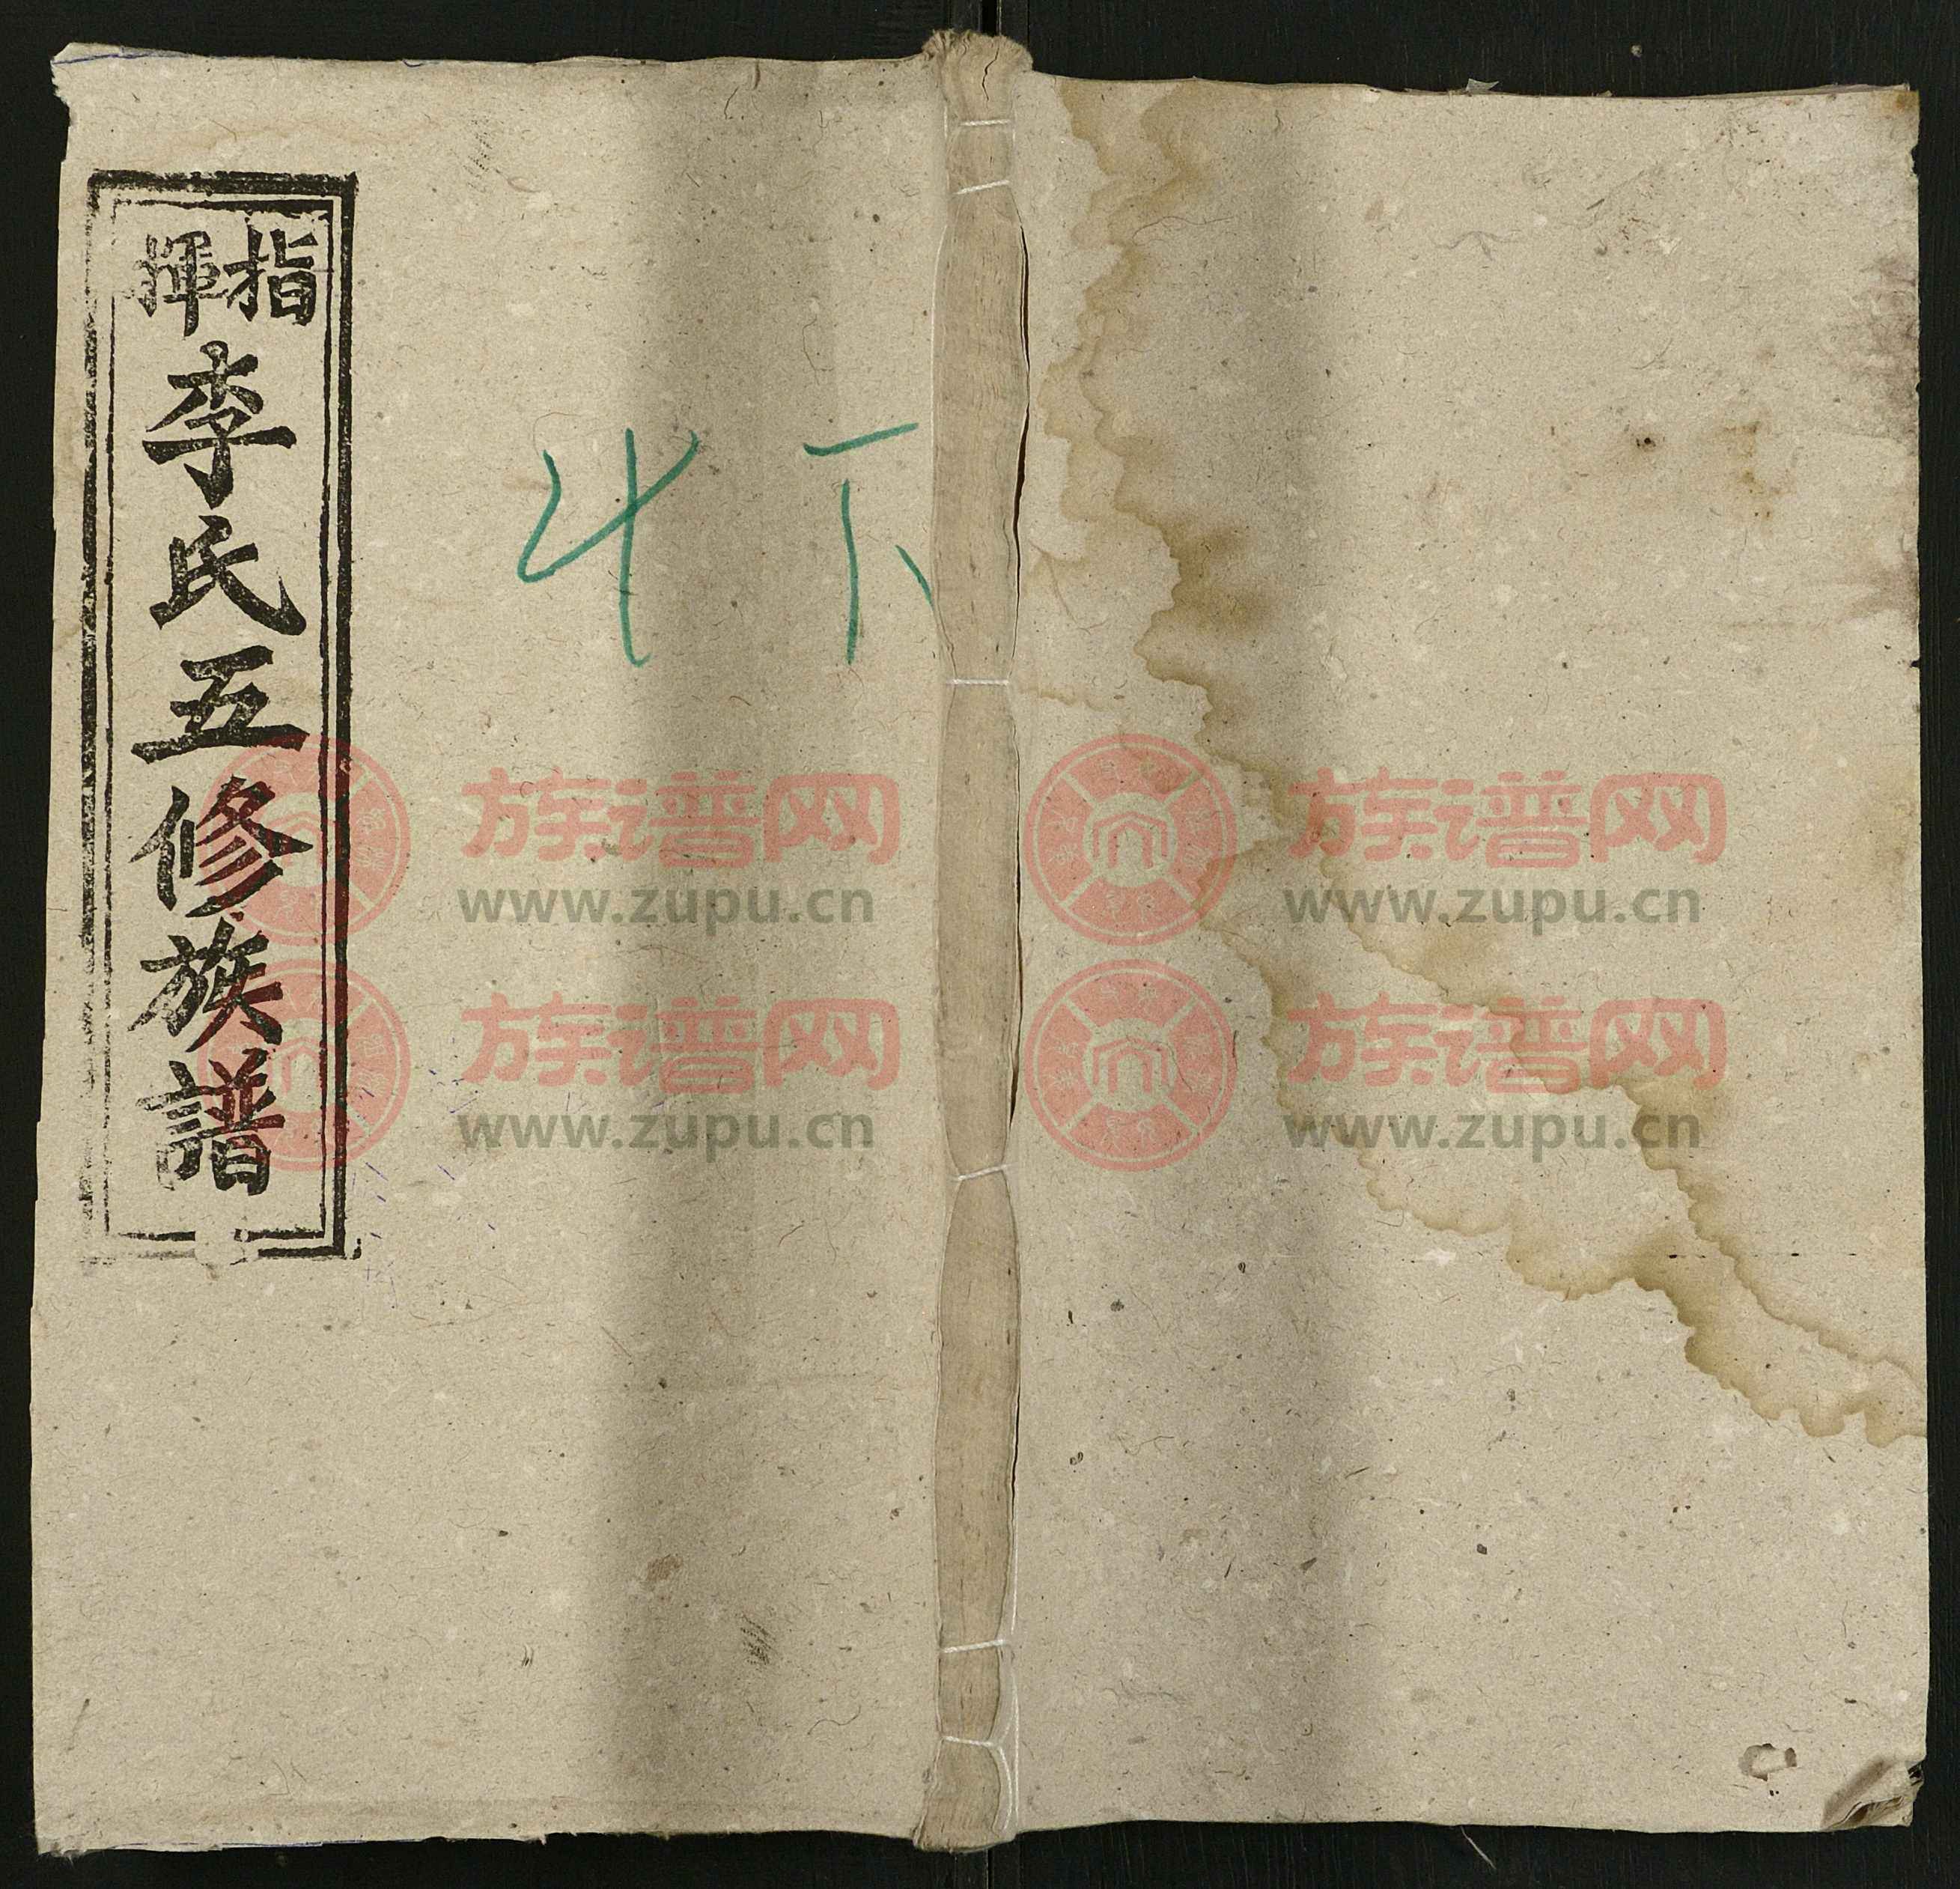 指揮
李氏五修族譜
4下
族谱网 族谱网
www.zupu.cn www.zupu.cn
族谱网 族谱网
www.zupu.cn www.zupu.cn